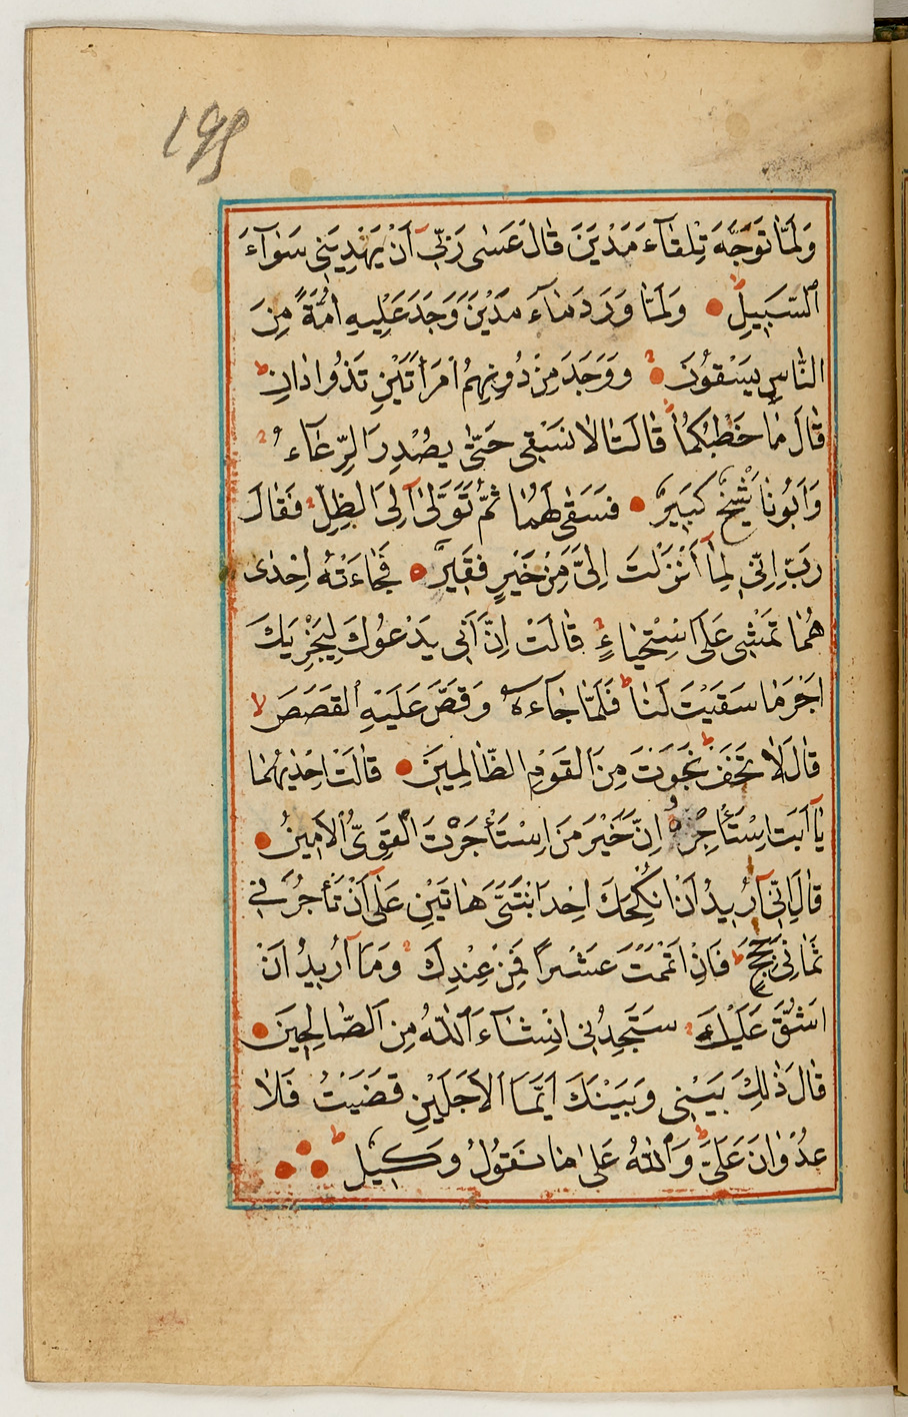 ١٩٩
وَلَمَّا تَوَجَّهَ تِلْقَآءَ مَدْيَنَ قَالَ عَسٰى رَبّٓى اَنْ يَهْدِيَنٖى سَوَآءَ
السَّبٖيلِ وَلَمَّا وَرَدَ مَآءَ مَدْيَنَ وَجَدَ عَلَيْهِ اُمَّةً مِنَ
النَّاسِ يَسْقُونَ وَوَجَدَ مِنْ دُونِهِمُ امْرَاَتَيْنِ تَذُودَانِ
قَالَ مَا خَطْبُكُمَا قَالَتَا لَا نَسْقٖى حَتّٰى يُصْدِرَ الرِّعَآءُ
وَاَبُونَا شَيْخٌ كَبٖيرٌ فَسَقٰى لَهُمَا ثُمَّ تَوَلّٰٓى اِلَى الظِّلِّ فَقَالَ
رَبِّ اِنّٖى لِمَآ اَنْزَلْتَ اِلَىَّ مِنْ خَيْرٍ فَقٖيرٌ فَجَاءَتْهُ اِحْدٰى
هُمَا تَمْشٖى عَلَى اسْتِحْيَاءٍ قَالَتْ اِنَّ اَبٖى يَدْعُوكَ لِيَجْزِيَكَ
اَجْرَ مَا سَقَيْتَ لَنَا فَلَمَّا جَآءَهُ وَقَصَّ عَلَيْهِ الْقَصَصَ
قَالَ لَا تَخَفْ نَجَوْتَ مِنَ الْقَوْمِ الظَّالِمٖينَ قَالَتْ اِحْدٰيهُمَا
يَآ اَبَتِ اسْتَأْجِرْهُ اِنَّ خَيْرَ مَنِ اسْتَأْجَرْتَ الْقَوِىُّ الْاَمٖينُ
قَالَ اِنّٖٓى اُرٖيدُ اَنْ اُنْكِحَكَ اِحْدَ ابْنَتَىَّ هَاتَيْنِ عَلٰٓى اَنْ تَأْجُرَنٖى
ثَمَانِىَ حِجَجٍ فَاِنْ اَتْمَمْتَ عَشْرًا فَمِنْ عِنْدِكَ وَمَآ اُرٖيدُ اَنْ
اَشُقَّ عَلَيْكَ سَتَجِدُنٖى اِنْ شَآءَ اللّٰهُ مِنَ الصَّالِحٖينَ
قَالَ ذٰلِكَ بَيْنٖى وَبَيْنَكَ اَيَّمَا الْاَجَلَيْنِ قَضَيْتُ فَلَا
عُدْوَانَ عَلَىَّ وَاللّٰهُ عَلٰى مَا نَقُولُ وَكٖيلٌ